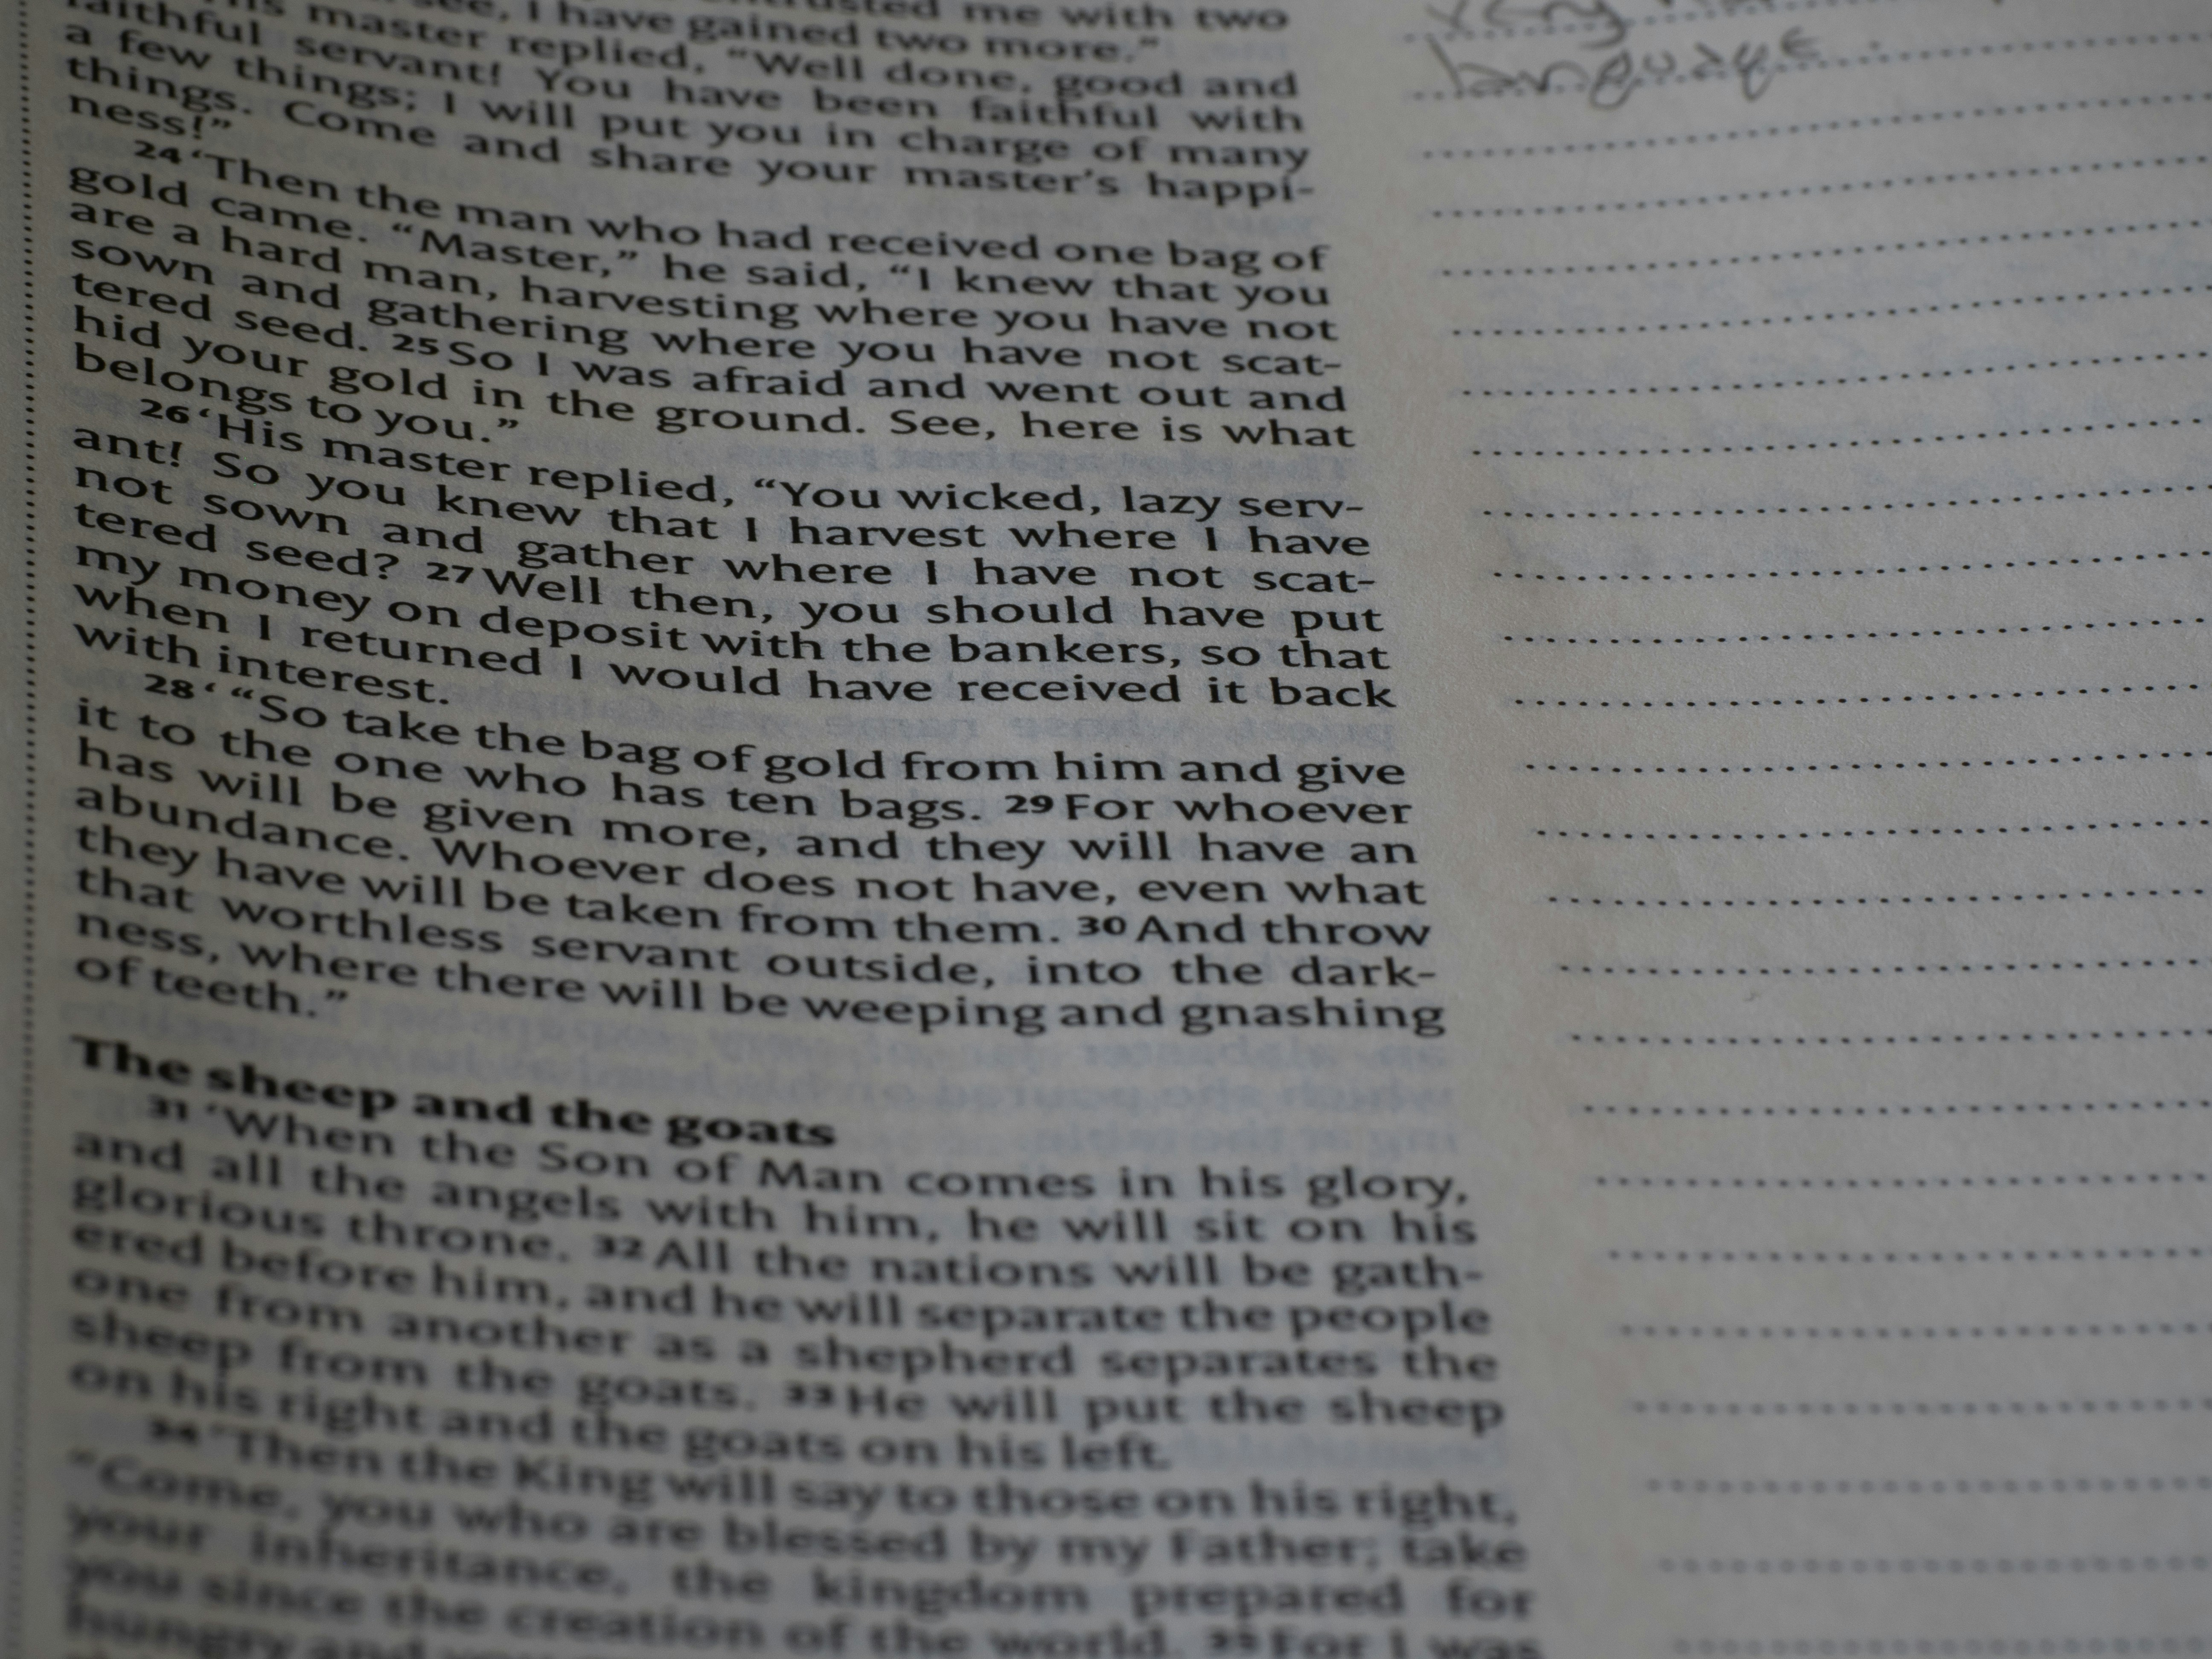 see, I have gained two more.”
master replied, “Well done, good and
faithful servant! You have been faithful with
a few things; I will put you in charge of many
things. Come and share your master’s happi-
ness!”
24 ‘Then the man who had received one bag of
gold came. “Master,” he said, “I knew that you
are a hard man, harvesting where you have not
sown and gathering where you have not scat-
tered seed. 25 So I was afraid and went out and
hid your gold in the ground. See, here is what
belongs to you.”
26 ‘His master replied, “You wicked, lazy serv-
ant! So you knew that I harvest where I have
not sown and gather where I have not scat-
tered seed? 27 Well then, you should have put
my money on deposit with the bankers, so that
when I returned I would have received it back
with interest.
28 ‘ “So take the bag of gold from him and give
it to the one who has ten bags. 29 For whoever
has will be given more, and they will have an
abundance. Whoever does not have, even what
they have will be taken from them. 30 And throw
that worthless servant outside, into the dark-
ness, where there will be weeping and gnashing
of teeth.”
The sheep and the goats
31 ‘When the Son of Man comes in his glory,
and all the angels with him, he will sit on his
glorious throne. 32 All the nations will be gath-
ered before him, and he will separate the people
one from another as a shepherd separates the
sheep from the goats. 33 He will put the sheep
on his right and the goats on his left.
34 ‘Then the King will say to those on his right,
“Come, you who are blessed by my Father; take
your inheritance, the kingdom prepared for
you since the creation of the world. 35 For I was
hungry and
very
language.